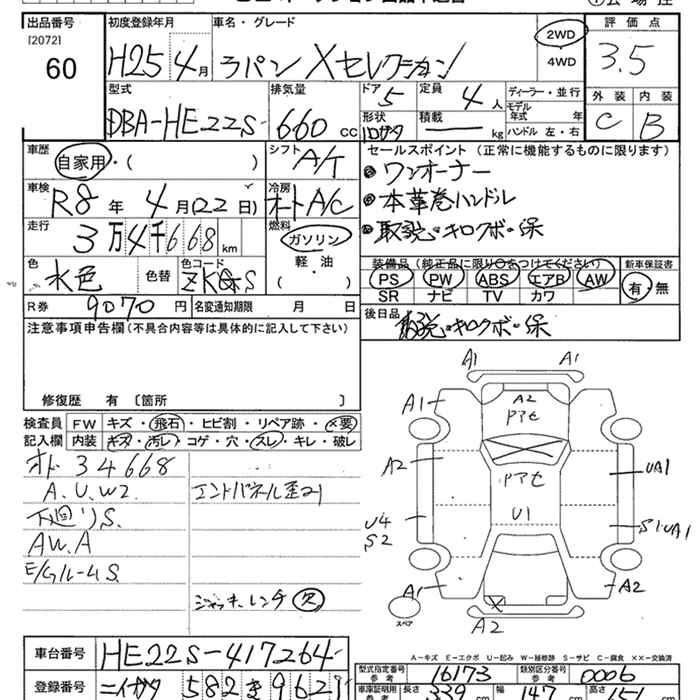 出品番号 初度登録年月 車名・グレード 評価点
[2072]
60 H25 4月 ラパン Xセレクション 2WD 4WD 3.5
型式 排気量 ドア 定員 ディーラー・並行 外装 内装
DBA-HE22S- 660 cc 5 4人 モデル年式 年式 C B
形状 積載 kg ハンドル 左・右
車歴 シフト セールスポイント(正常に機能するものに限ります)
自家用・( ) A/T ワンオーナー
車検 冷房 本革巻ハンドル
R8年 4月(22日) オートA/C 取説・キロクボ・保
走行 燃料
3万4千668km ガソリン
軽・油
( )
色 色替 色コード 装備品(純正品に限り○をつけてください) 新車保証書
水色 ZKGS PS PW ABS エアB AW 有・無
SR ナビ TV カワ
R券 9070円 名変通知期限 月 日 後日品
注意事項申告欄(不具合内容等は具体的に記入して下さい) 取説・キロクボ・保
修復歴 有〔箇所 〕
検査員記入欄 FW キズ・飛石・ヒビ割・リペア跡・×要
内装 キズ・汚レ・コゲ・穴・スレ・キレ・破レ
オド 34668
A.U.W2. エンドパネル歪21
下廻りS.
AW.A
E/GルームS.
ジャッキ・レンチ 欠
A1 A1
A1 A2
アアセ
A2 アアセ UA1
U1
U4 S2 S1UA1
A1 A2
スペア A2
A-キズ E-エクボ U-凹み W-補修跡 S-サビ C-腐食 ××-交換済
車台番号 HE22S-417264-
型式指定番号 参考 16173 類別区分番号 参考 0006
登録番号 ニイガタ 582 き 962
車庫証明用 参考 長さ 339 cm 幅 147 cm 高さ